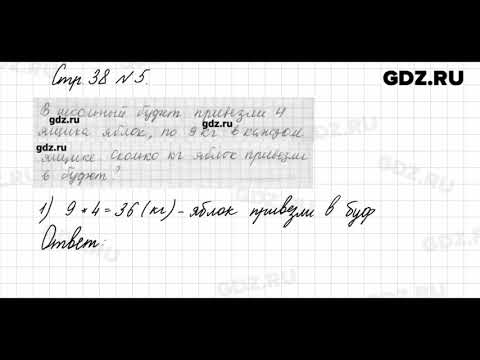 GDZ.RU
Стр. 38 № 5.
В школьный буфет привезли 4
gdz.ru
gdz.ru
ящика яблок, по 9 кг в каждом
gdz.ru
ящике сколько кг яблок привезли
в буфет?
1) 9 * 4 = 36 (кг) - яблок привезли в буф
Ответ: